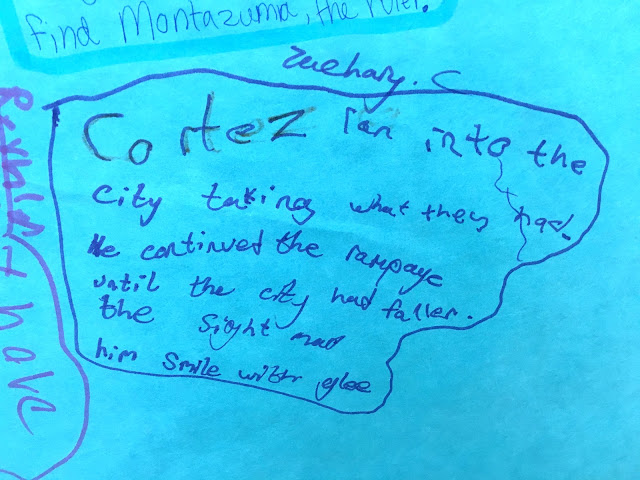 find Montazuma, the ruler.
Zachary. C
Cortez ran into the
city taking what they had.
He continued the rampage
until the city had fallen.
the sight mad
him smile with glee
have